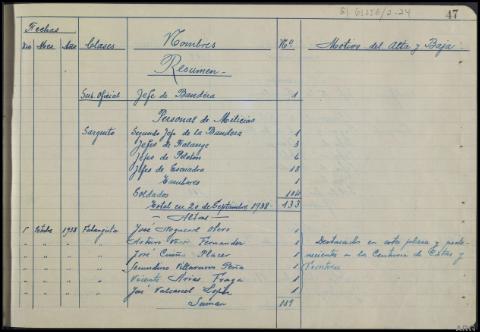 47
Fechas
Dia Mes Año Clases Nombres Nº Motivo del Alta y Baja
Resumen.-
Sub. Oficial Jefe de Bandera 1
Personal de Milicias
Sargento Segundo Jefe de la Bandera 1
Jefes de Falange 3
Jefes de Peloton 6
Jefes de Escuadra 18
1
Soldados 104
Total en 20 de Septiembre 1938- 133
- Altas -
5 Octubre 1938 Falangista José Noguerol Otero 1
" " " " Arturo Fernandez 1 Destacados en esta plaza y
" " " " José Placer 1 en la Centuria de Costas y
" " " " Secundino Villanueva Peña 1 Fronteras
" " " " Vicente Arias Fraga 1
" " " " José Valcarcel Lopez 1
Suman 139